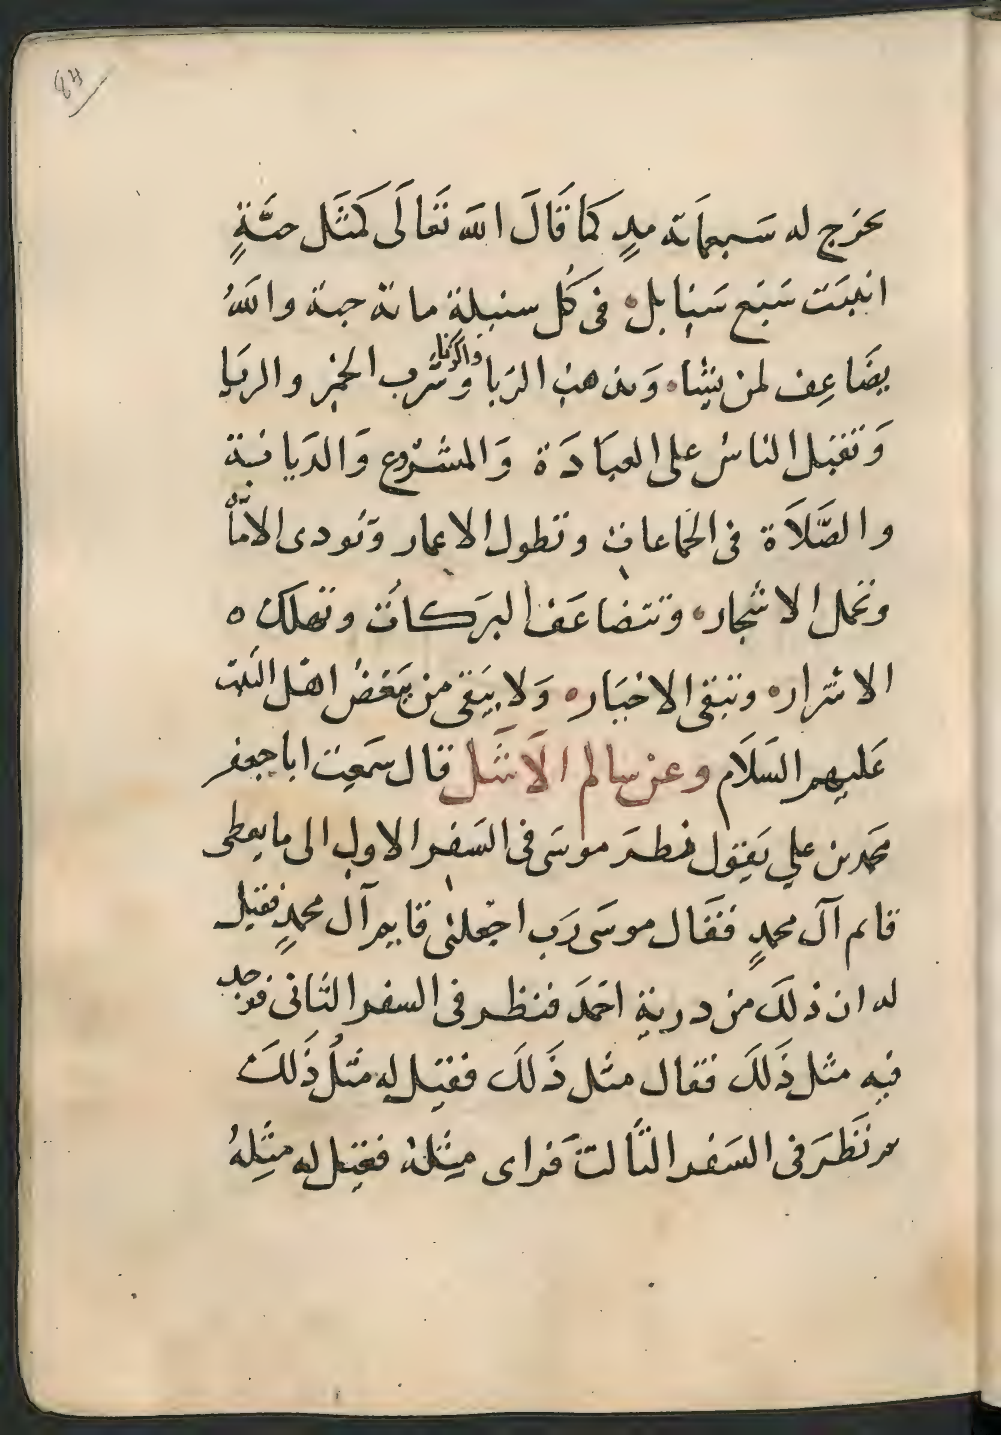 84
يخرج له سَبعمَائة مدٍ كمَا قَالَ الله تَعَالَى كَمثَل حبَّةٍ
انبتَت سَبَع سَنابل في كُل سنبلة مائة حبة واللهُ
يضَاعِف لمن يشاء وَيذهب الربا والزنا وشرب الخمر والريَا
وَتقبل الناسُ على العبَادَة وَالمشروع وَالديانية
والصَّلاَة في الجماعات وتطول الاعمار وتودى الامانَة
وتحمل الاشجار وتتضاعَف البرَكاتُ وتهلك
الاشرار وتبقى الاخيَار وَلا يبَقى من يَبغضُ اهَل البَيت
عَليهم السَلاَم وعن سالم الاَشَل قال سَمعِت ابا جعفر
محمَد بن علي يَقول نظرَ موسَى في السَفر الاول الى ما يعطى
قائم آل محمدٍ فقَال موسَى رَب اجعلنى قايم آل محمدٍ فقيل
له ان ذلكَ من درية احمَدَ فنظر فى السفر الثانى فوجد
فيه مثل ذَلكَ فقال مثل ذَلكَ فقيل له مثلُ ذَلكَ
ثم نَظَرَ فى السَفر الثالث فَراى مِثلهُ فقيل له مثِلهُ